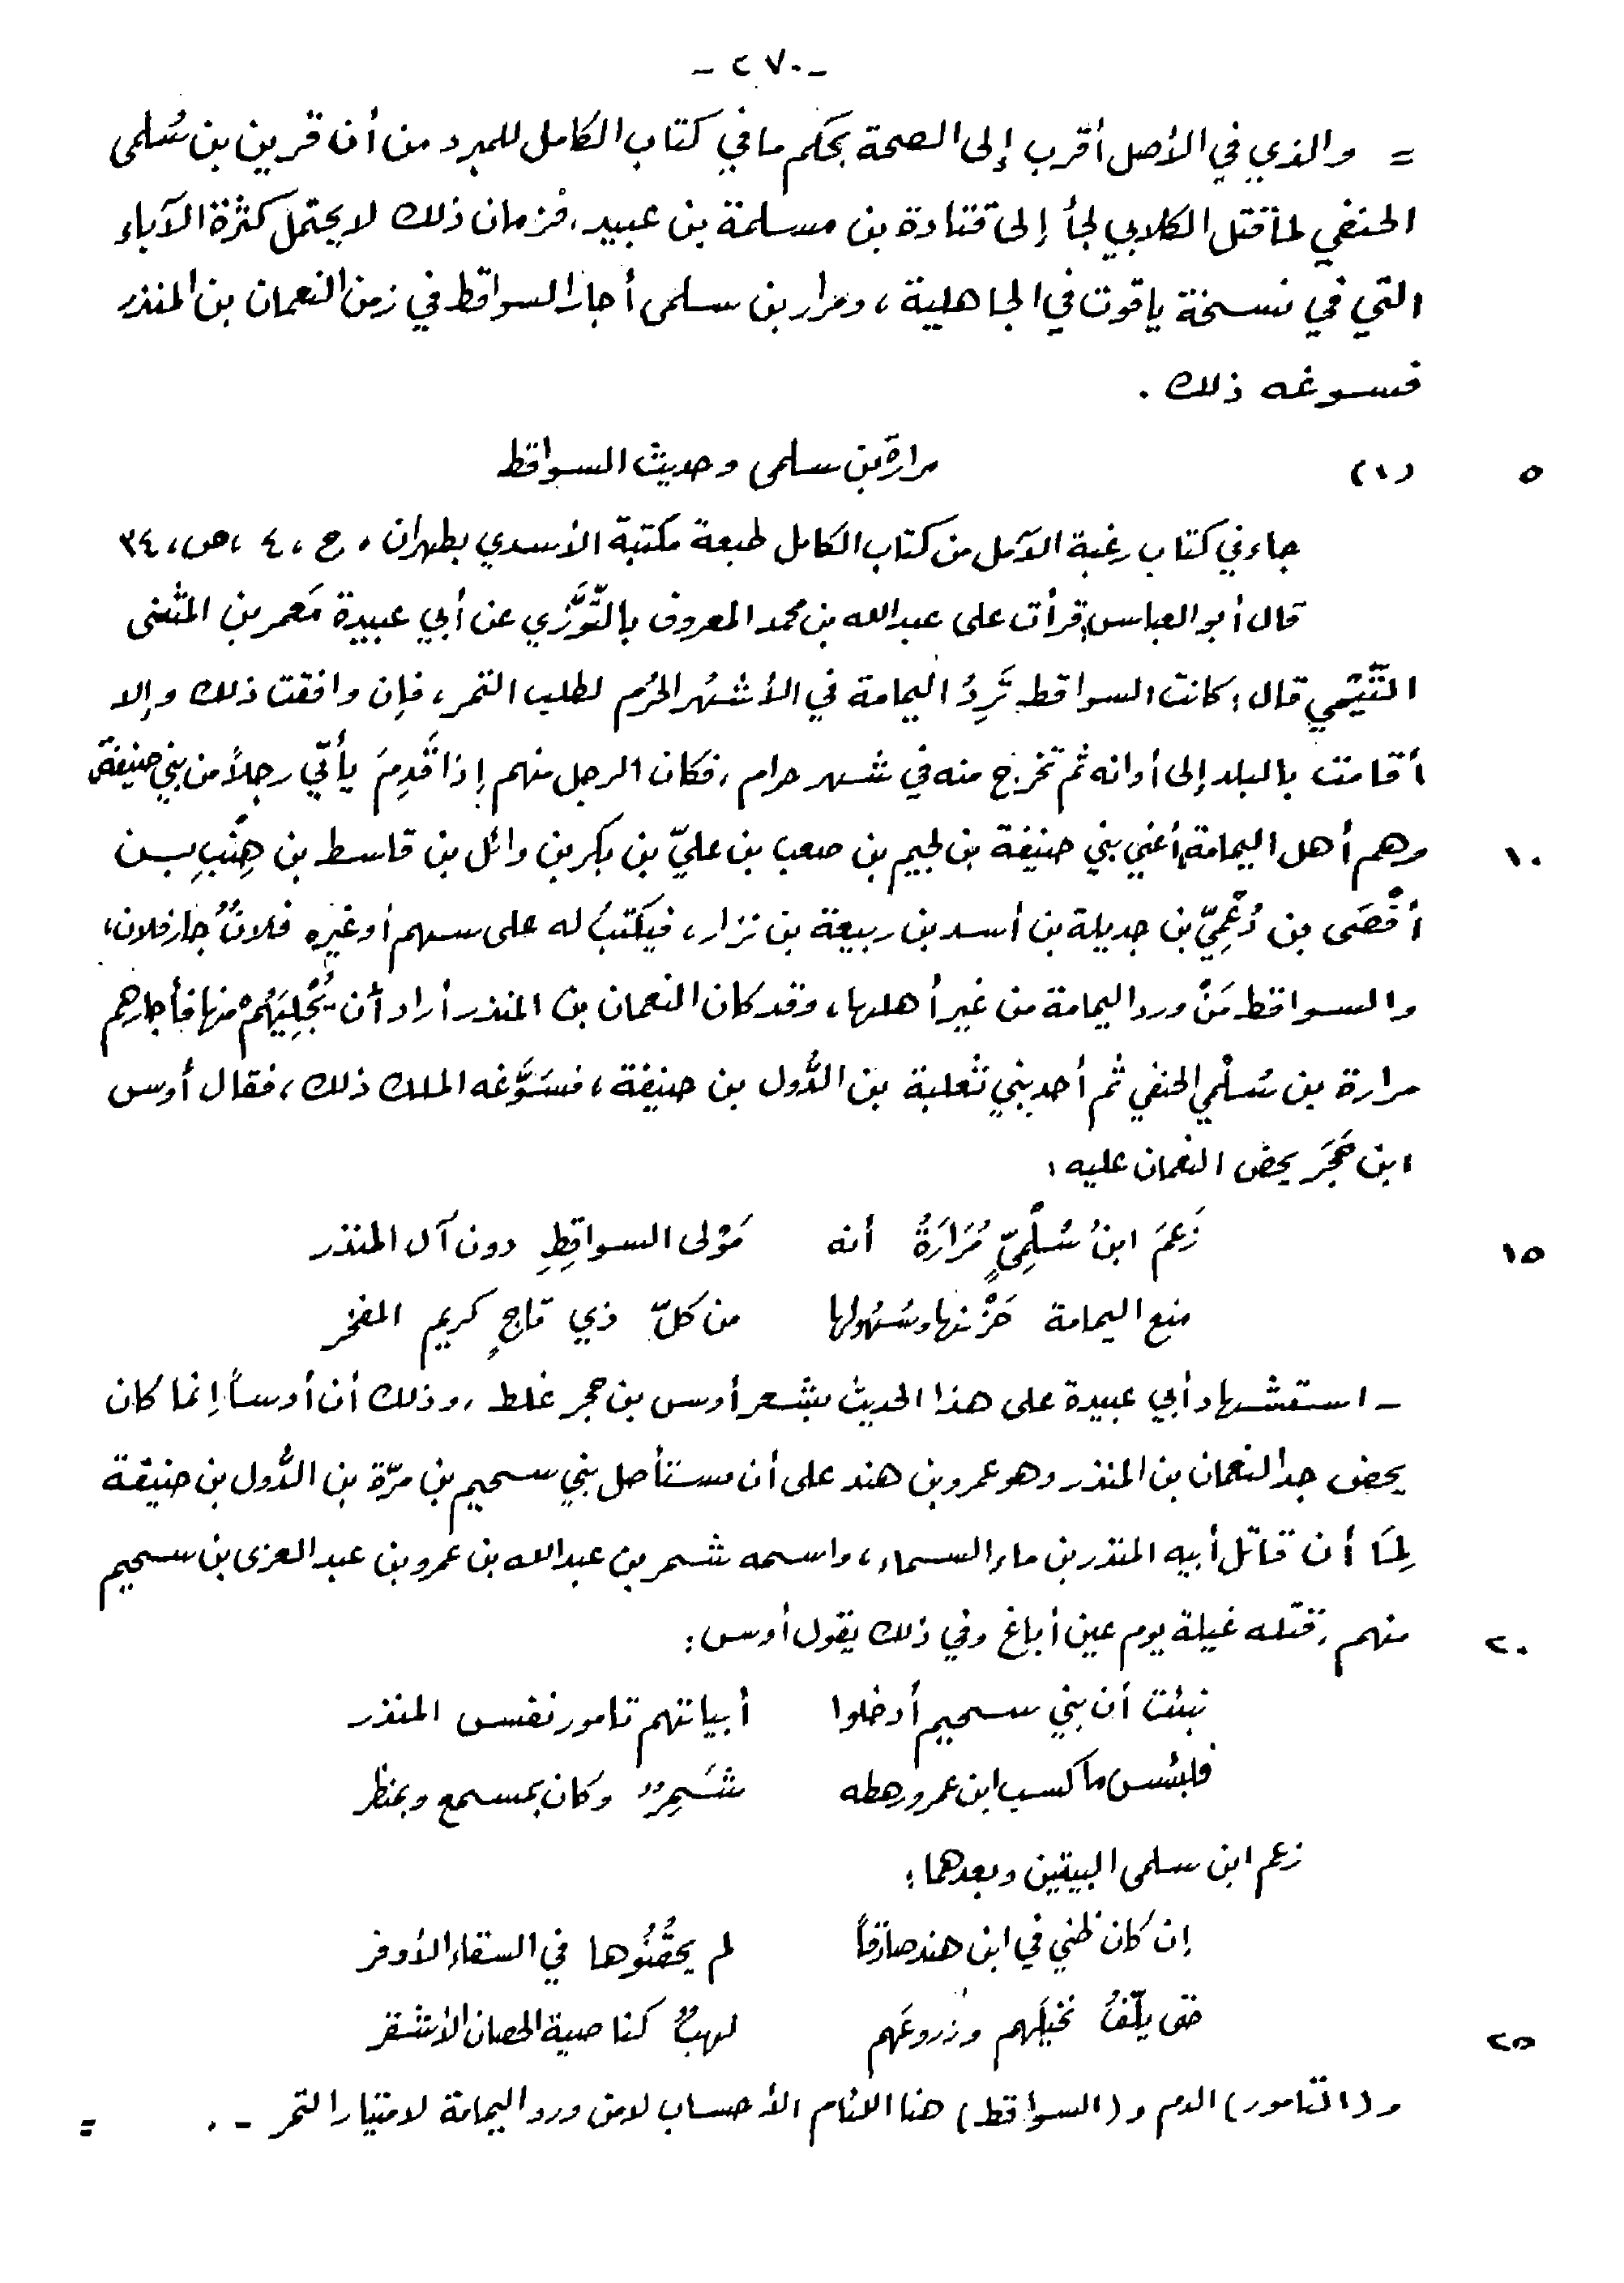 - ٢٧٠ -
= والذي في الأصل أقرب إلى الصحة بحكم ما في كتاب الكامل للمبرد من أن قرين بن سُلمى
الحنفي لما قتل الكلابي لجأ إلى قتادة بن مسلمة بن عبيد، فزمان ذلك لا يحتمل كثرة الآباء
التي في نسخة ياقوت في الجاهلية، ومرار بن سلمى أجار السواقط في زمن النعمان بن المنذر
فسوغه ذلك .
٥ (١) مرارة بن سلمى وحديث السواقط
جاء في كتاب رغبة الآمل من كتاب الكامل طبعة مكتبة الأسدي بطهران، ج، ٤، ص، ٣٤
قال أبو العباس: قرأت على عبدالله بن محمد المعروف بالتَّوَّزي عن أبي عبيدة مَعمر بن المثنى
التَّيْمي قال: كانت السواقط تَرِدُ اليمامة في الأشهُر الحُرم لطلب التمر، فإن وافقت ذلك وإلا
أقامت بالبلد إلى أوانه ثم تخرج منه في شهر حرام، فكان الرجل منهم إذا قَدِمَ يأتي رجلاً من بني حنيفة
١٠ وهم أهل اليمامة، أعني بني حنيفة بن لجيم بن صعب بن عليّ بن بكر بن وائل بن قاسط بن هِنْبِ بــن
أفْصَى بن دُعْمِيّ بن جديلة بن أسد بن ربيعة بن نزار، فيكتبُ له على سهم أو غيره فلانٌ جار فلان،
والسواقط مَنْ ورد اليمامة من غير أهلها، وقد كان النعمان بن المنذر أراد أن يُجْلِيَهُمْ منها فأجارهم
مرارة بن سُلْمي الحنفي ثم أحد بني ثعلبة بن الدُّول بن حنيفة، فسَوَّغه الملك ذلك، فقال أوس
ابن حَجَر يحض النعمان عليه:
١٥ زَعمَ ابنُ سُلْمِيٍّ مُرَارَةُ أنه مَوْلى السواقِطِ دون آل المنذر
منع اليمامة حَزْنها وسُهولها من كلّ ذي تاجٍ كريم المفخر
- استشهاد أبي عبيدة على هذا الحديث بشعر أوس بن حجر غلط، وذلك أن أوساً إنما كان
يحض جد النعمان بن المنذر وهو عمرو بن هند على أن يستأصل بني سحيم بن مرّة بن الدُّول بن حنيفة
لِمَا أن قاتل أبيه المنذر بن ماء السماء، واسمه شمر بن عبدالله بن عمرو بن عبد العزى بن سحيم
٢٠ منهم، قتله غيلة يوم عين أباغ وفي ذلك يقول أوس:
نبئت أن بني سحيم أدخلوا أبياتهم تامور نفس المنذر
فلبئس ما كسب ابن عمرو رهطه شَمِرٌ وكان بمسمع وبمنظر
زعم ابن سلمى البيتين وبعدهما:
إن كان ظني في ابن هند صادقاً لم يحقُنُوها في السقاء الأوفر
٢٥ حتى يلّفَ نخيلَهم وزروعَهم لهبٌ كناصية الحصان الأشقر
و(التامور) الدم و(السواقط) هنا اللئام الأحساب لا من ورد اليمامة لامتيار التمر - . =